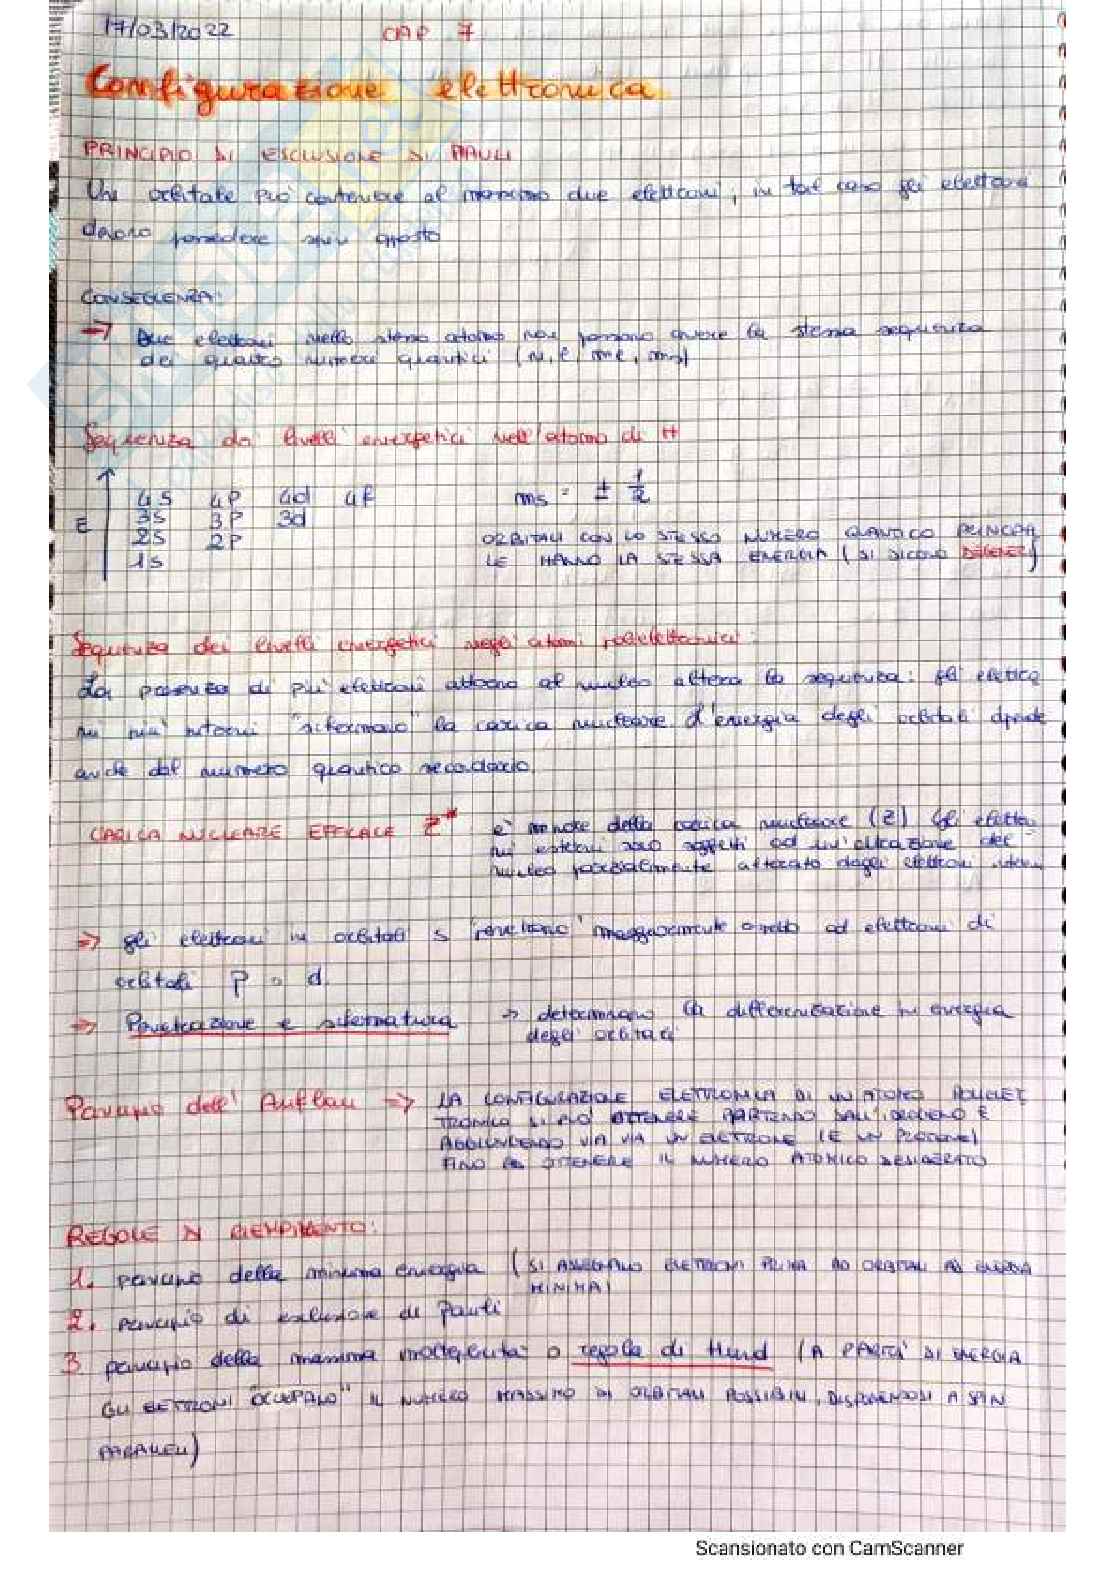 17/03/2022 CAP 7
Configurazione elettronica
PRINCIPIO DI ESCLUSIONE DI PAULI
Un orbitale può contenere al massimo due elettroni, in tal caso gli elettroni
devono possedere spin opposto
CONSEGUENZA:
→ Due elettroni nello stesso atomo non possono avere la stessa sequenza
dei quattro numeri quantici (n, l, ml, ms)
Sequenza dei livelli energetici nell'atomo di H
4s 4p 4d 4f
3s 3p 3d
2s 2p
1s
E
ms = ± 1/2
ORBITALI CON LO STESSO NUMERO QUANTICO PRINCIPA
LE HANNO LA STESSA ENERGIA (SI DICONO DEGENERI)
Sequenza dei livelli energetici negli atomi polielettronici:
La presenza di più elettroni attorno al nucleo altera la sequenza: gli elettro
ni più interni "schermano" la carica nucleare l'energia degli orbitali dipende
anche dal numero quantico secondario.
CARICA NUCLEARE EFFICACE Z*
è minore della carica nucleare (Z) gli elettro
ni esterni sono soggetti ad un'attrazione del
nucleo parzialmente alterato dagli elettroni interni
⇒ gli elettroni in orbitali s "penetrano" maggiormente rispetto ad elettroni di
orbitali p o d.
⇒ Penetrazione e schermatura → determinano la differenziazione in energia
degli orbitali
Principio dell'Aufbau ⇒ LA CONFIGURAZIONE ELETTRONICA DI UN ATOMO POLIELET
TRONICO SI PUÒ OTTENERE PARTENDO DALL'IDROGENO E
AGGIUNGENDO VIA VIA UN ELETTRONE (E UN PROTONE)
FINO AD OTTENERE IL NUMERO ATOMICO DESIDERATO
REGOLE DI RIEMPIMENTO:
1. principio della minima energia (SI ASSEGNANO ELETTRONI PRIMA AD ORBITALI AD ENERGIA
MINIMA)
2. principio di esclusione di Pauli
3. principio della massima molteplicità o regola di Hund (A PARITÀ DI ENERGIA
GLI ELETTRONI "OCCUPANO" IL NUMERO MASSIMO DI ORBITALI POSSIBILI, DISPONENDOSI A SPIN
PARALLELI)
Scansionato con CamScanner